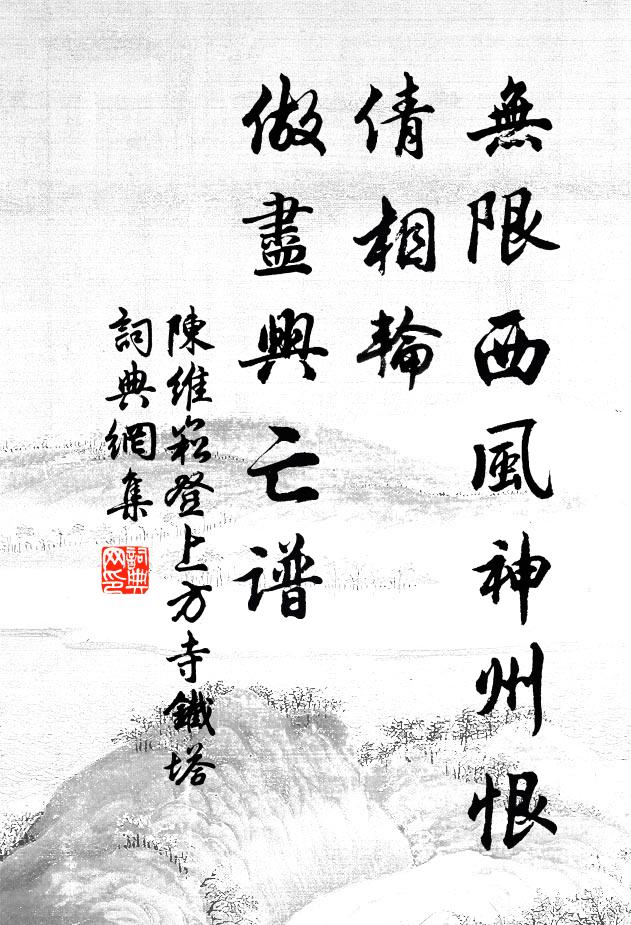 無限西風神州恨
倩相輪
做盡興亡譜
陳維崧登上方寺鐵塔
詞典網集
詞典网印